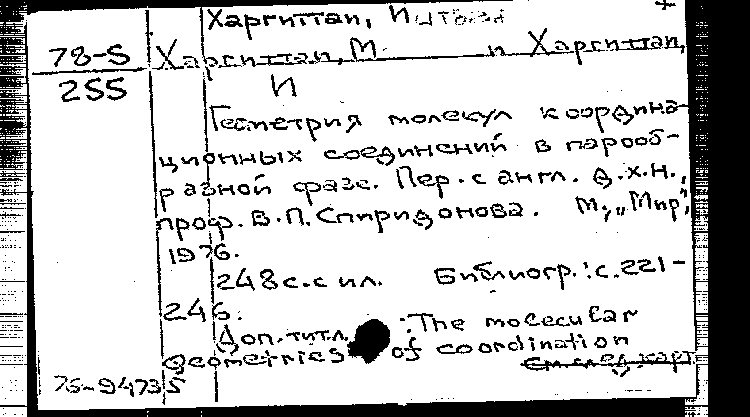 Харгиттаи, Иштван
78-5
255
Харгиттаи, М. и Харгиттаи,
И
Геометрия молекул координа-
ционных соединений в парооб-
разной фазе. Пер. с англ. д.х.н.,
проф. В.П. Спиридонова. М., „Мир",
1976.
248 с. с ил. Библиогр.: с. 221-
246.
Доп. титл. : The molecular
geometries of coordination
См. след. карт
76-94735